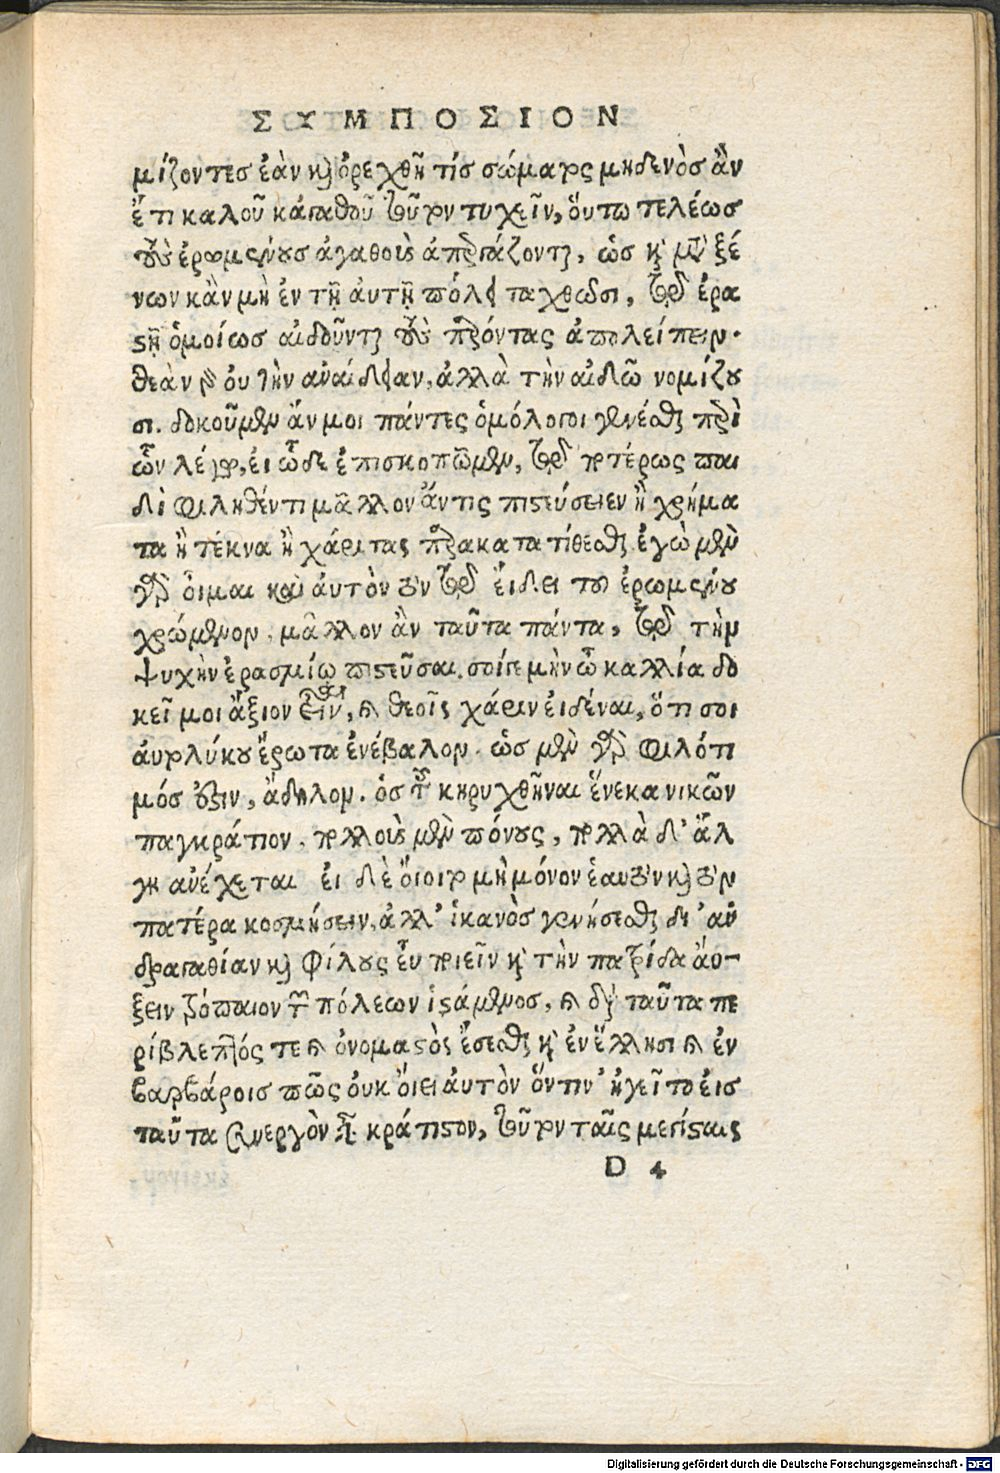 ΣΥΜΠΟΣΙΟΝ
μίζοντες ἐὰν καὶ ὀρεχθῇ τίς σώματος μηδενὸς ἂν
ἔτι καλοῦ κἀγαθοῦ τοῦτον τυχεῖν, οὕτω τελέως
τοὺς ἐρωμένους ἀγαθοὺς ἀπεργάζονται, ὡς καὶ μετὰ ξέ
νων κἂν μὴ ἐν τῇ αὐτῇ πόλει ταχθῶσι, τῷ ἐρα
στῇ ὁμοίως αἰδοῦνται τοὺς παρόντας ἀπολείπειν.
θεὰν γὰρ οὐ τὴν ἀναίδειαν, ἀλλὰ τὴν αἰδῶ νομίζου
σι. δοκοῦμεν ἄν μοι πάντες ὁμόλογοι γενέσθαι περὶ
ὧν λέγω, εἰ ὧδε ἐπισκοποῖμεν, τῷ ποτέρως παι
δὶ φιληθέντι μᾶλλον ἄν τις πιστεύσειεν ἢ χρήμα
τα ἢ τέκνα ἢ χάριτας παρακατατίθεσθαι ἐγὼ μὲν
γὰρ οἶμαι καὶ αὐτὸν τὸν τῷ εἴδει τοῦ ἐρωμένου
χρώμενον, μᾶλλον ἂν ταῦτα πάντα, τῷ τὴν
ψυχὴν ἐρασμίῳ πιστεῦσαι. σοίγε μὴν ὦ καλλία δο
κεῖ μοι ἄξιον εἶναι, καὶ θεοῖς χάριν εἰδέναι, ὅτι σοι
αὐτολύκου ἔρωτα ἐνέβαλον. ὡς μὲν γὰρ φιλότι
μός ἐστιν, ἄδηλον. ὃς τοῦ κηρυχθῆναι ἕνεκα νικῶν
παγκράτιον, πολλοὺς μὲν πόνους, πολλὰ δ' ἄλ
γη ἀνέχεται εἰ δὲ οἴοιτο μὴ μόνον ἑαυτὸν καὶ τὸν
πατέρα κοσμήσειν, ἀλλ' ἱκανὸς γενήσεσθαι δι' ἀν
δραγαθίαν καὶ φίλους εὖ ποιεῖν καὶ τὴν πατρίδα αὔ-
ξειν τρόπαιον τῶν πόλεων ἱστάμενος, καὶ διὰ ταῦτα πε
ρίβλεπτός τε καὶ ὀνομαστὸς ἔσεσθαι καὶ ἐν ἕλλησι καὶ ἐν
βαρβάροις πῶς οὐκ οἴει αὐτὸν ὅντιν' ἡγεῖτο εἰς
ταῦτα συνεργὸν εἶναι κράτιστον, τοῦτον ταῖς μεγίσταις
D 4
Digitalisierung gefördert durch die Deutsche Forschungsgemeinschaft - DFG